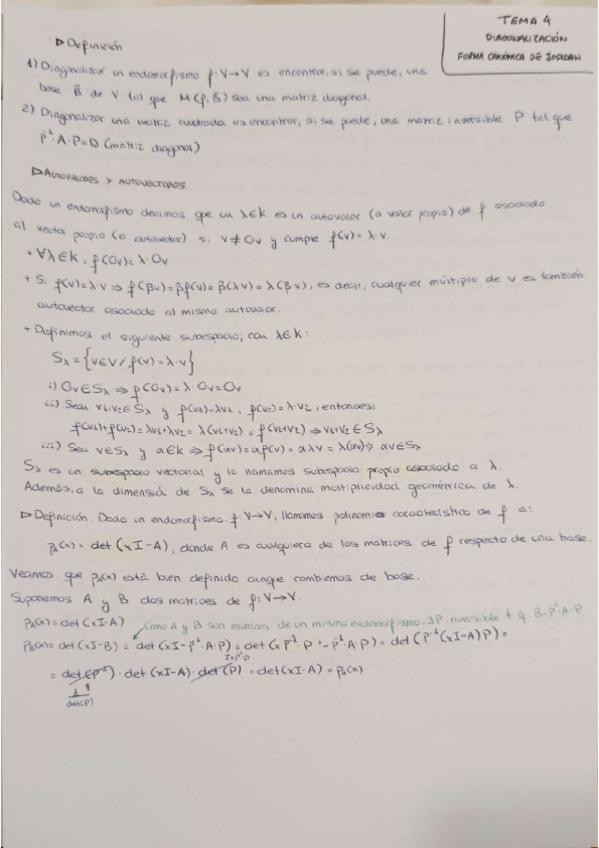 TEMA 4
DIAGONALIZACIÓN
FORMA CANÓNICA DE JORDAN
▷ Definición
1) Diagonalizar un endomorfismo f: V→V es encontrar, si se puede, una
base B̃ de V tal que M(f, B̃) sea una matriz diagonal.
2) Diagonalizar una matriz cuadrada es encontrar, si se puede, una matriz inversible P tal que
P⁻¹·A·P=D (matriz diagonal)
▷ AUTOVALORES Y AUTOVECTORES
Dado un endomorfismo decimos que un λ∈k es un autovalor (o valor propio) de f asociado
al vector propio (o autovector) si v≠0v y cumple f(v)=λ·v.
+ ∀λ∈k, f(0v)=λ·0v
+ Si f(v)=λ·v ⇒ f(βv)=βf(v)=β(λv)=λ(βv), es decir, cualquier múltiplo de v es también
autovector asociado al mismo autovalor.
+ Definimos el siguiente subespacio, con λ∈k:
Sλ={v∈V / f(v)=λ·v}
i) 0v∈Sλ ⇒ f(0v)=λ·0v=0v
ii) Sean v1,v2∈Sλ y f(v1)=λv1, f(v2)=λ·v2, entonces:
f(v1)+f(v2)=λv1+λv2=λ(v1+v2)=f(v1+v2) ⇒ v1+v2∈Sλ
iii) Sea v∈Sλ y α∈k ⇒ f(αv)=αf(v)=αλv=λ(αv) ⇒ αv∈Sλ
Sλ es un subespacio vectorial y lo llamamos subespacio propio asociado a λ.
Además, a la dimensión de Sλ se la denomina multiplicidad geométrica de λ.
▷ Definición. Dado un endomorfismo f: V→V, llamamos polinomio característico de f a:
pA(x)=det(xI-A), donde A es cualquiera de las matrices de f respecto de una base.
Veamos que pA(x) está bien definido aunque cambiemos de base.
Suponemos A y B dos matrices de f: V→V.
pA(x)=det(xI-A)
Como A y B son matrices de un mismo endomorfismo, ∃P inversible t.q. B=P⁻¹·A·P
pB(x)=det(xI-B)=det(xI-P⁻¹·A·P)=det(xP⁻¹·P-P⁻¹·A·P)=det(P⁻¹(xI-A)P)=
I=P⁻¹P
=det(P⁻¹)·det(xI-A)·det(P)=det(xI-A)=pA(x)
1
det(P)